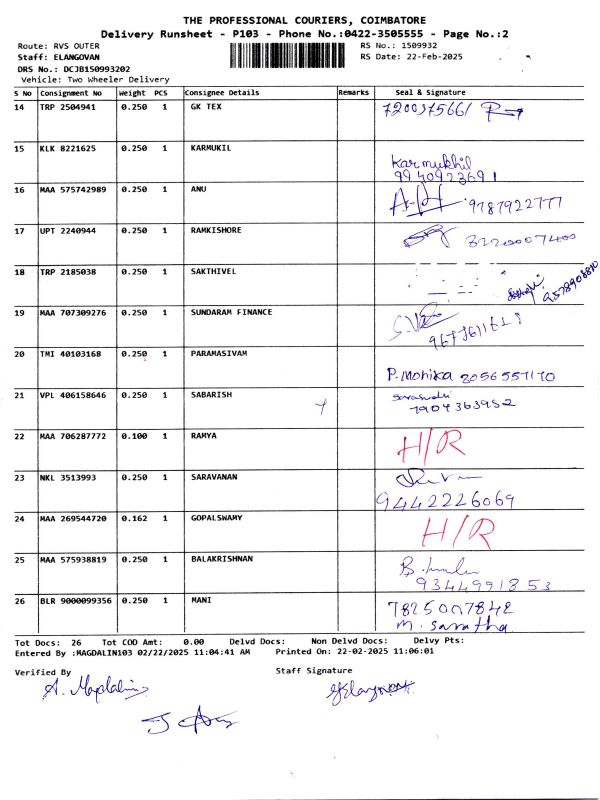 THE PROFESSIONAL COURIERS, COIMBATORE
Delivery Runsheet - P103 - Phone No.:0422-3505555 - Page No.:2
Route: RVS OUTER RS No.: 1509932
Staff: ELANGOVAN RS Date: 22-Feb-2025
DRS No.: DCJB150993202
Vehicle: Two Wheeler Delivery
S No Consignment No Weight PCS Consignee Details Remarks Seal & Signature
14 TRP 2504941 0.250 1 GK TEX 7200375661
15 KLK 8221625 0.250 1 KARMUKIL
Karmukhil
9940923691
16 MAA 575742989 0.250 1 ANU 9787922777
17 UPT 2240944 0.250 1 RAMKISHORE
18 TRP 2185038 0.250 1 SAKTHIVEL
19 MAA 707309276 0.250 1 SUNDARAM FINANCE
20 TMI 40103168 0.250 1 PARAMASIVAM
P. Monika 8056557170
21 VPL 406158646 0.250 1 SABARISH
7904363952
22 MAA 706287772 0.100 1 RAMYA H/R
23 NKL 3513993 0.250 1 SARAVANAN
9442226069
24 MAA 269544720 0.162 1 GOPALSWAMY H/R
25 MAA 575938819 0.250 1 BALAKRISHNAN
9344991853
26 BLR 9000099356 0.250 1 MANI 7825007842
M. Saratha
Tot Docs: 26 Tot COD Amt: 0.00 Delvd Docs: Non Delvd Docs: Delvy Pts:
Entered By :MAGDALIN103 02/22/2025 11:04:41 AM Printed On: 22-02-2025 11:06:01
Verified By Staff Signature
A. Magdalin